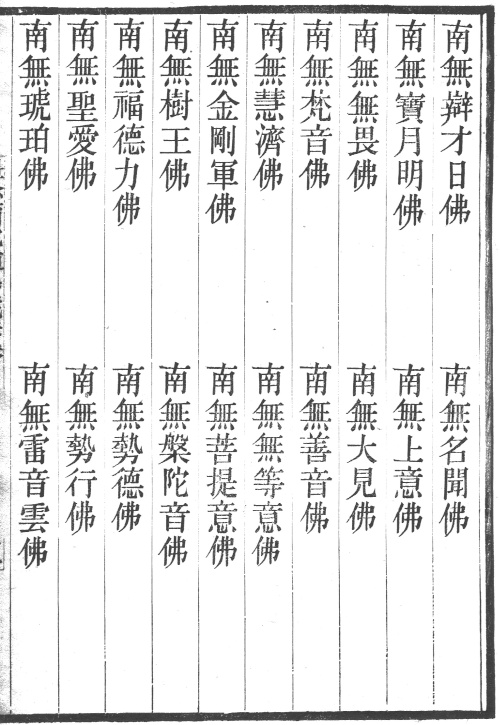 南無辯才日佛　南無名聞佛
南無寶月明佛　南無上意佛
南無無畏佛　南無大見佛
南無梵音佛　南無善音佛
南無慧濟佛　南無無等意佛
南無金剛軍佛　南無菩提意佛
南無樹王佛　南無槃陀音佛
南無福德力佛　南無勢德佛
南無聖愛佛　南無勢行佛
南無琥珀佛　南無雷音雲佛